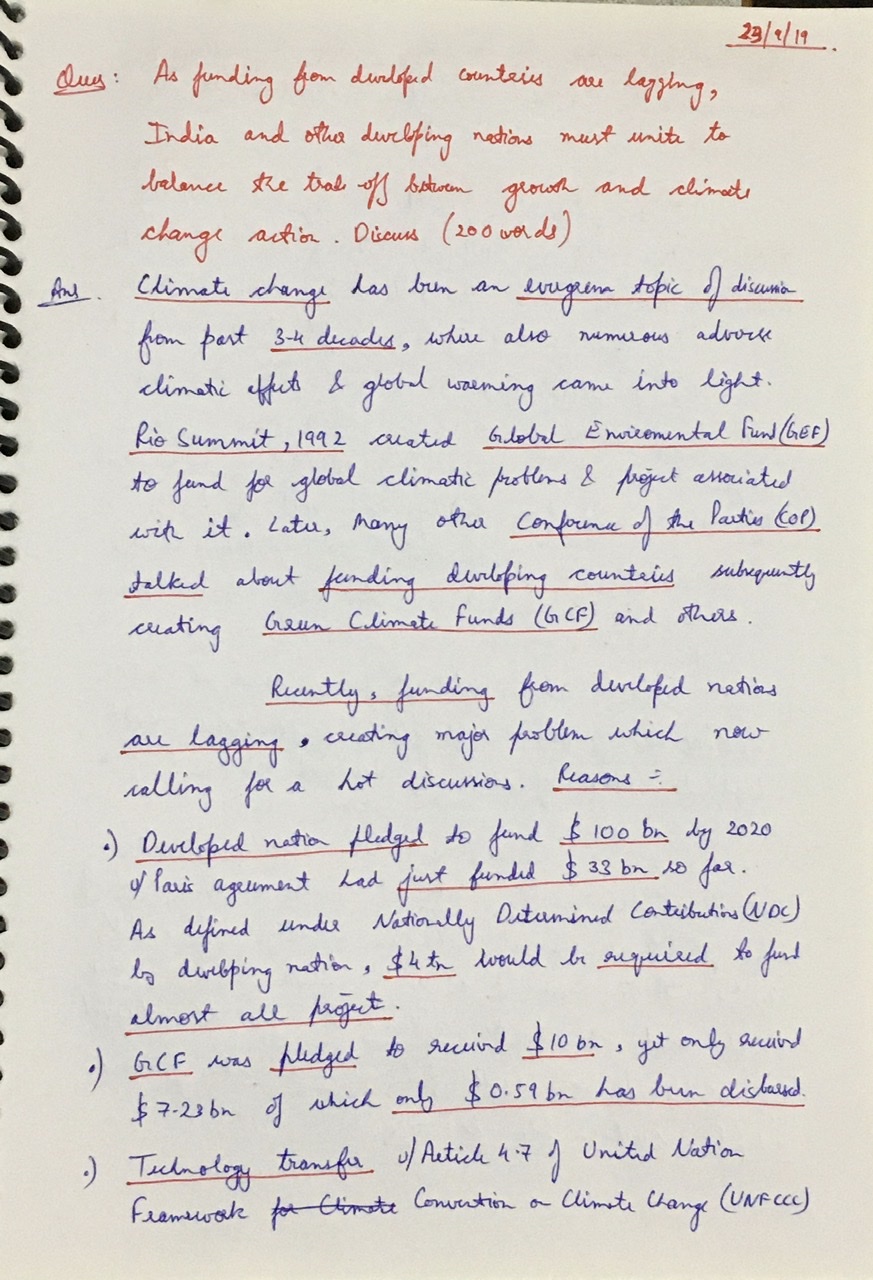 23/9/19
Ques: As funding from developed countries are lagging,
India and other developing nations must unite to
balance the trade off between growth and climate
change action. Discuss (200 words)
Ans. Climate change has been an evergreen topic of discussion
from past 3-4 decades, where also numerous adverse
climatic effects & global warming came into light.
Rio Summit, 1992 created Global Enviromental Fund (GEF)
to fund for global climatic problems & project associated
with it. Later, many other Conference of the Parties (COP)
talked about funding developing countries subsequently
creating Green Climate Funds (GCF) and others.
Recently, funding from developed nations
are lagging, creating major problem which now
calling for a hot discussions. Reasons :-
•) Developed nation pledged to fund $100 bn by 2020
u/ Paris agreement had just funded $33 bn so far.
As defined under Nationally Determined Contributions (NDC)
by developing nation, $4 tn would be required to fund
almost all project.
•) GCF was pledged to received $10 bn, yet only received
$7.23 bn of which only $0.59 bn has been disbursed.
•) Technology transfer u/ Article 4.7 of United Nation
Framework for Climate Convention on Climate Change (UNFCCC)